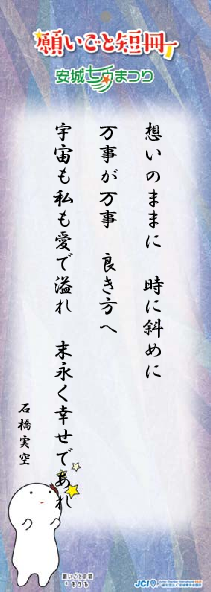 願いごと短冊
安城七夕まつり
想いのままに　時に斜めに
万事が万事　良き方へ
宇宙も私も愛で溢れ　末永く幸せであれ
石橋実空